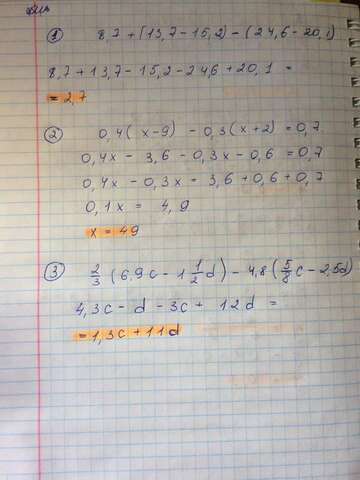 ① 8,7 + (13,7 - 15,2) - (24,6 - 20,1)
8,7 + 13,7 - 15,2 - 24,6 + 20,1 =
= 2,7
② 0,4(x-9) - 0,3(x+2) = 0,7
0,4x - 3,6 - 0,3x - 0,6 = 0,7
0,4x - 0,3x = 3,6 + 0,6 + 0,7
0,1x = 4,9
x = 49
③ 2/3 (6,9c - 1 1/2 d) - 4,8(5/8 c - 2,5d)
4,3c - d - 3c + 12d =
= 1,3c + 11d